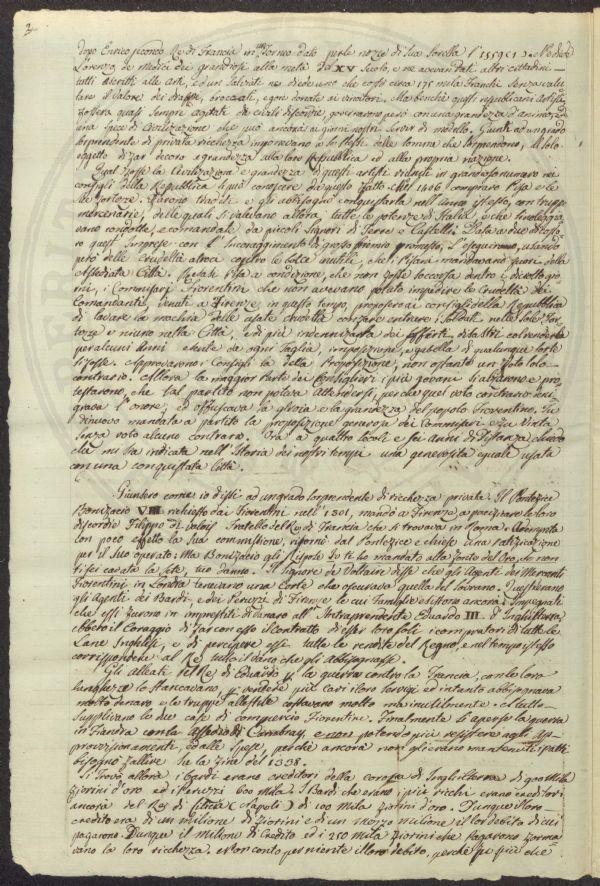 dopo Enrico secondo Re di Francia in Torneo dato per le nozze di Sua Sorella l'1559
Lorenzo de Medici dei grandiosi alla metà del XV Secolo, e ne avevan dati altri cittadini
tutti ascritti alle Arti, ed un Salviati ne diede uno che costò circa 175 mila Franchi Senza valu
tare il valore dei drappi, broccati, e gon donate ai vincitori. Ma benchè questi republicani Artisti
fossero quasi Sempre agitati da civili discordie, governarono però con una grandezza d'animo, ed
una Specie di Civilizazione che può ancora ai giorni nostri Servir di modello. Giunti ad un grado
Sorprendente di privata ricchezza
oggetto di far decoro e grandezza alla loro Republica ed alla propria nazione.
Qual fosse la Civilizazione e grandezza di questi artisti riuniti in grandioso numero nei
consigli della Republica Si può conoscere da questo fatto. Nel 1406 comprarono Pisa e le
Sue fortezze. Furono traditi e gli abbisognò conquistarla nell'anno istesso, con truppe
mercenarie, delle quali Si valevano allora, tutte le potenze di Italia, e che
vano condotte, e comandate da piccoli Signori di Terre e Castelli. Data a due di costo
ro quest'Impresa con l'Incoraggimento di grosso premio promesso, l'eseguirono, usando
però delle crudeltà atroci contro le bocche inutili, che i Pisani mandavano fuori della
Assediata Città. Resasi Pisa a condizione, che non fosse soccorsa dentro i dieci gior
ni, i Commissari Fiorentini che non avevano potuto impedire le Crudeltà dei
Comandanti, venuti a Firenze in questo tempo, proposero ai consigli della Republica
di lavare la macchia delle usate crudeltà con far entrare i Soldati nelle Sole For
tezze e niuno nella Città, e di più indennizarla dei Sofferti disastri col renderla
per alcuni Anni esente da ogni Taglia, imposizione, e gabella di qualunque Sorte
Si fosse. Approvarono i Consigli la bella Proposizione, non ostante un Solo voto
contrario. Allora la maggior Parte dei Consiglieri i più giovani Si alzarono e pro
testarono, che tal partito non poteva attendersi, perchè quel voto contrario deni
grava l'onore, ed offuscava la gloria e la grandezza del popolo Fiorentino. Fu
di nuovo mandata a partito la proposizione generosa dei Commissari e fu Vinta
Senza voto alcuno contrario. Ora a quattro Secoli e Sei anni di distanza chiedo
che mi Sia indicata nell'Istoria dei nostri tempi una generosità eguale usata
con una conquistata Città.
Giunsero come io dissi ad un grado Sorprendente di ricchezza privata. Il Pontefice
Bonifacio VIII richiesto dai Fiorentini nell'1301, mandò a Firenze a pacificare le loro
discordie Filippo di Valois Fratello del Re di Francia che si trovava in Roma. Adempita
con poco effetto la Sua commissione, ritornò dal Pontefice e chiese una gratificazione
per il Suo operato: Ma Bonifacio gli rispose Io ti ho mandato alla fonte del Oro, Se non
ti Sei cavata la Sete, tuo danno. Il Signore de Voltaire disse che gli Agenti dei Mercanti
Fiorentini in Londra tenevano una Corte che oscurava quella del Sovrano. Questi erano
gli Agenti dei Bardi, e dei Peruzi di Firenze le cui Famiglie esistono ancora. Impegnati
che essi furono in imprestiti di danaro all'Intraprendente Eduardo III d'Inghilterra
ebbero il Coraggio di far con esso il contratto di esser loro Soli i compratori di tutte le
Lane Inglesi, e di percipere essi tutte le rendite del Regno, e nel tempo istesso
corrispondere al Re tutto il dano che gli abbisognasse.
Gli Alleati del Re di Eduardo per la guerra contro la Francia, con le loro
lunghezze lo Stancavano, per vendere più cari i loro Servigi ed intanto abbisognava
molto denaro e le truppe assoldate costavano molto ma inutilmente. A tutto
Supplivano le due case di commercio Fiorentine. Finalmente Si aperse la guerra
in Fiandra con l'Assedio di Cambray, e non potendo più resistere agli Ap
provisionamenti, ed alle Spese, perchè ancora non gli erano mantenuti i patti
bisognò fallire Su la fine del 1338.
Si trovò allora i bardi erano creditori della corona di Inghilterra di 900 Mila
fiorini d'oro ed i Peruzzi 600 Mila. I Bardi che erano i più ricchi erano creditori
ancora del Re di Sicilia (Napoli) di 100 mila fiorini d'oro. Dunque il loro
credito era di un milione di fiorini e di un mezzo milione il lor debito di cui
pagarono. Dunque il milione di Credito ed i 250 mila fiorini che pagarono forma
vano la loro ricchezza. Non conto per niente il loro debito, perchè fu più che